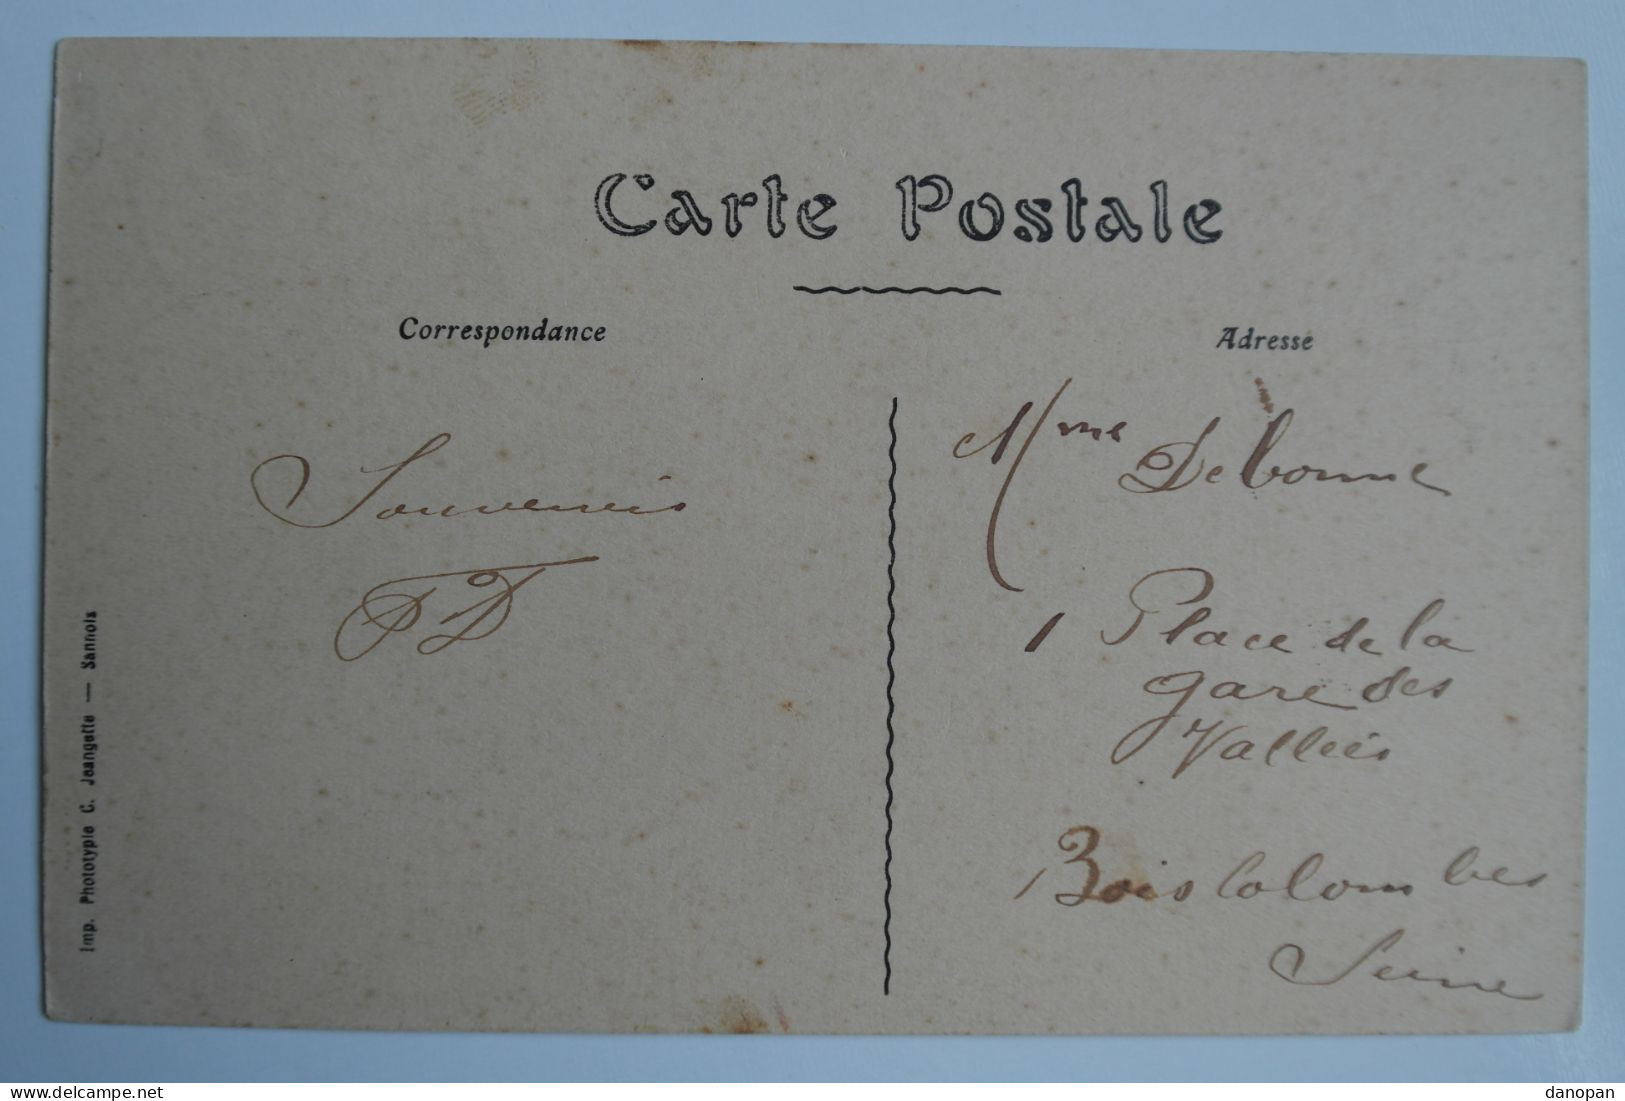 Carte Postale
Correspondance
Adresse
Souvenirs
Mme Debonne
1 Place de la
gare des
Vallées
Bois Colombes
Seine
Imp. Phototypie C. Jeangette — Sannois
delcampe.net
danopan